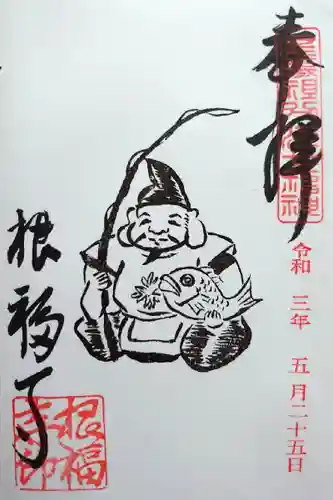 奉拝
令和三年五月二十五日
根福寺
根福
寺印